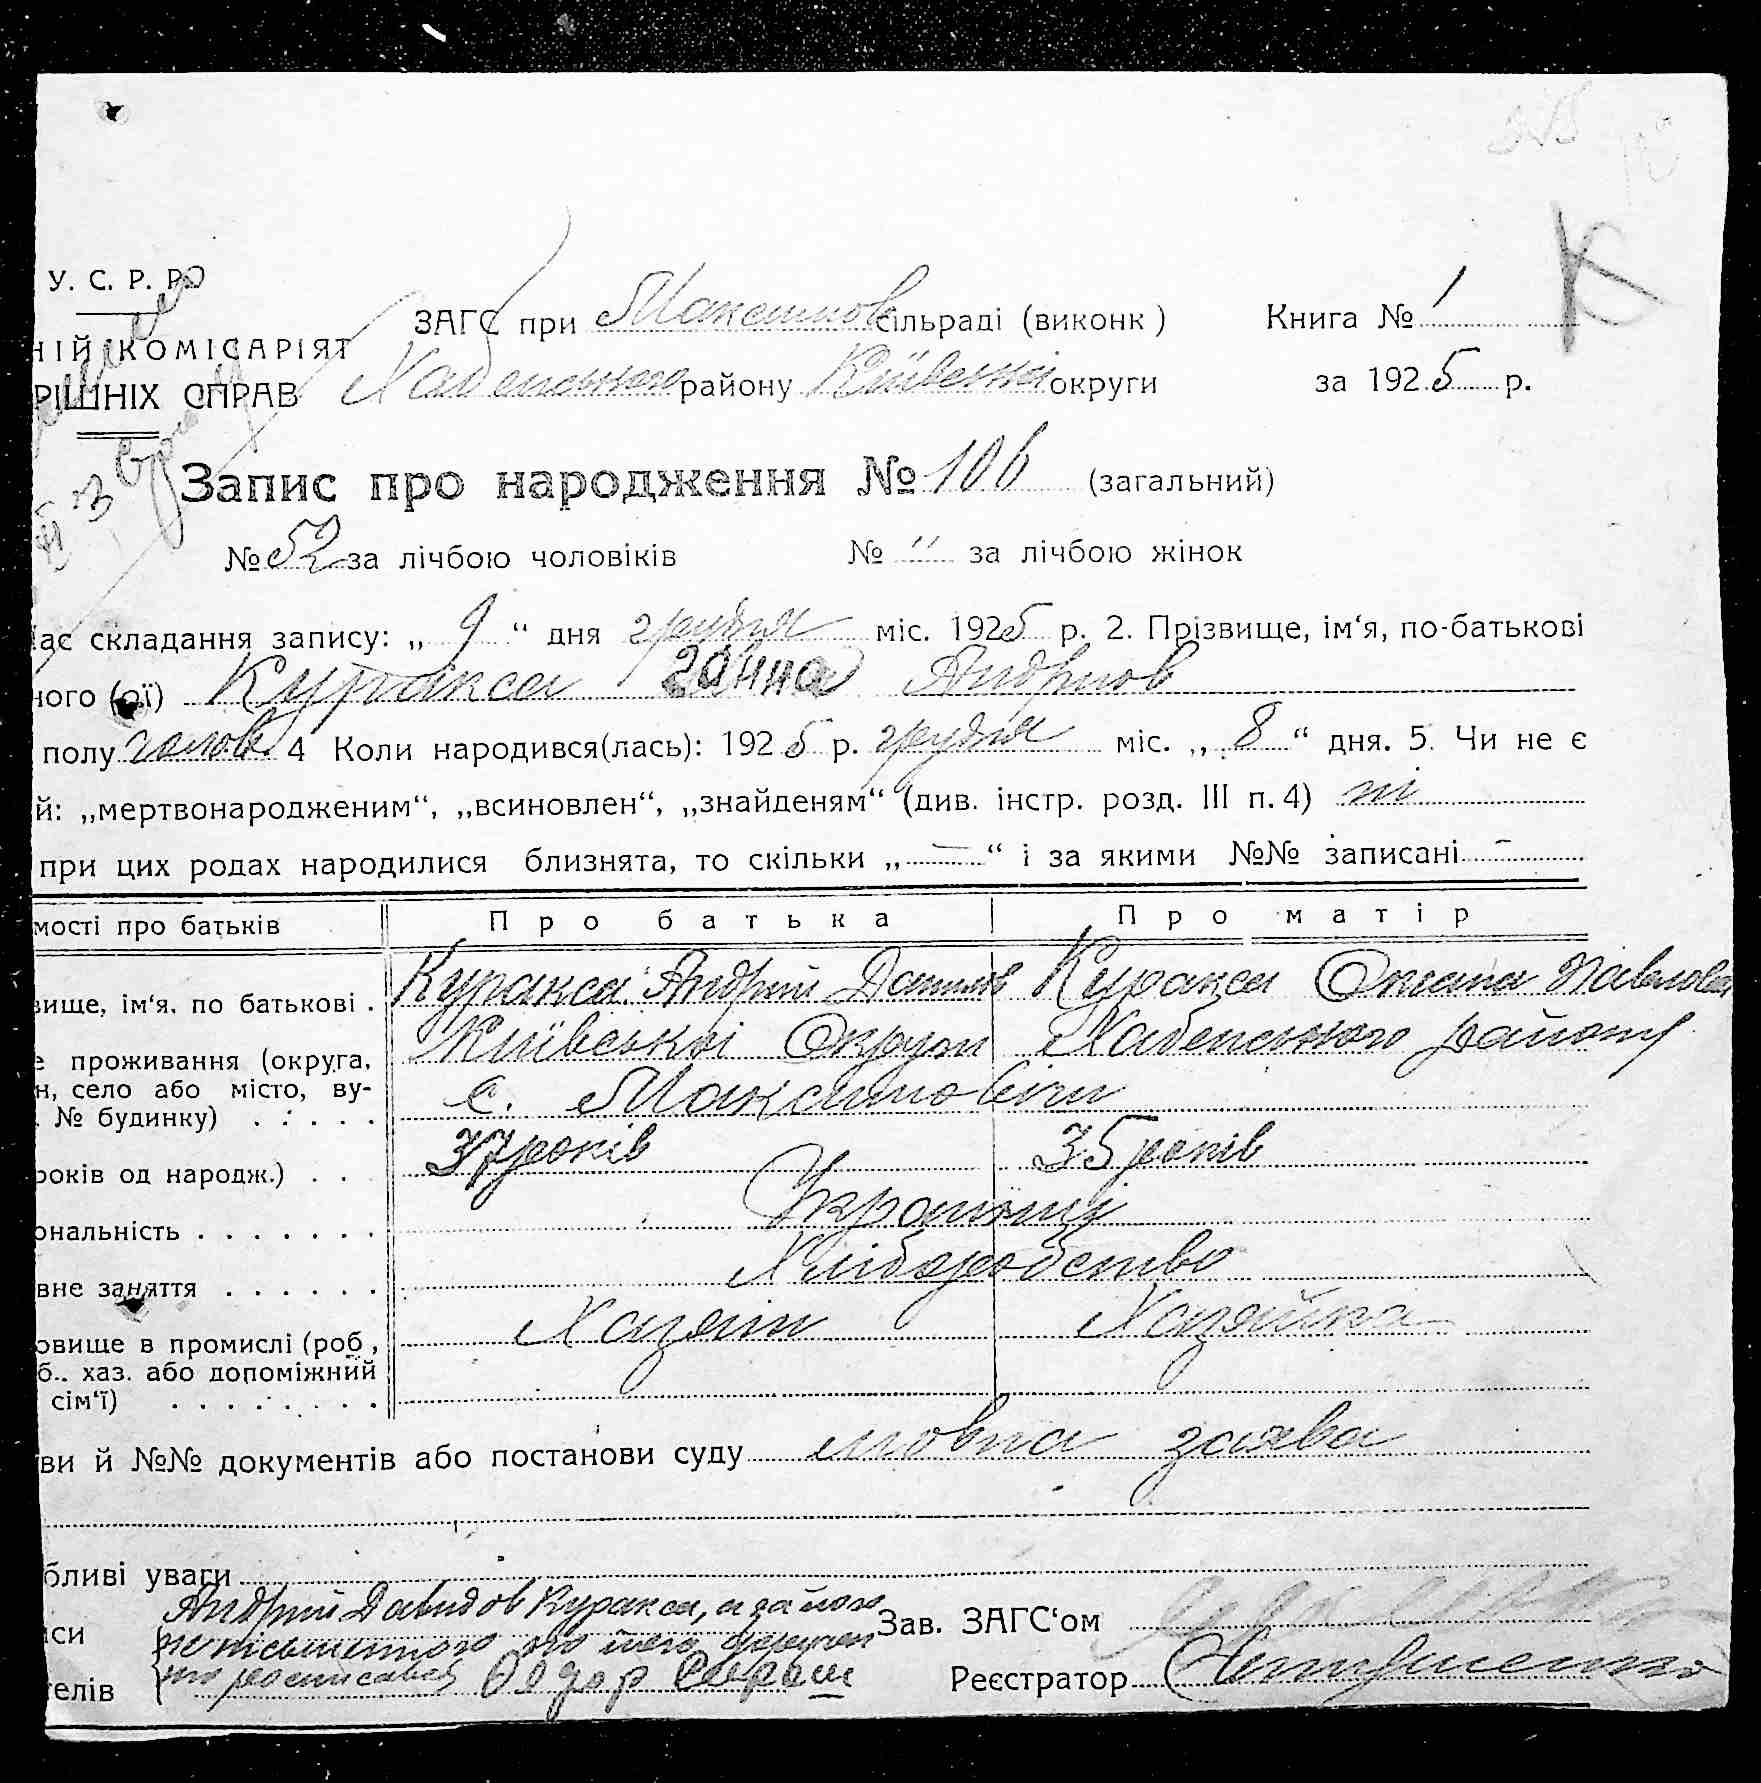 У. С. Р. Р.
ЗАГС при Максимов сільраді (виконк) Книга № 1
НІЙ КОМІСАРІЯТ
РІШНІХ СПРАВ Хабенського району Київської округи за 1925 р.
Запис про народження № 106 (загальний)
№ 52 за лічбою чоловіків № " за лічбою жінок
час складання запису: „ 9 “ дня грудня міс. 1925 р. 2. Прізвище, ім‘я, по-батькові
ного (ої) Куракса Ганна Андріїов
полу чолов. 4 Коли народився(лась): 1925 р. грудня міс. „ 8 “ дня. 5. Чи не є
й: „мертвонародженим“, „всиновлен“, „знайденям“ (див. інстр. розд. III п. 4) ні
при цих родах народилися близнята, то скільки „ — “ і за якими №№ записані -
мості про батьків Про батька Про матір
вище, ім‘я, по батькові . Куракса Андрій Давидов Куракса Оксана Павлова
е проживання (округа, Київської Округи Хабенського району
н, село або місто, ву- с. Максимовічи
. № будинку) . . . . .
років од народж.) . . 37 років 35 років
ональність . . . . . . . Українці
вне заняття . . . . . . Хліборобство
овище в промислі (роб., Хазяїн Хазяйка
б.. хаз. або допоміжний
сім‘ї) . . . . . . . .
ви й №№ документів або постанови суду мовна заява
бливі уваги
Андрій Давидов Куракса, а за його
си неписьменного по його Зав. ЗАГС‘ом
телів росписався Реєстратор
К